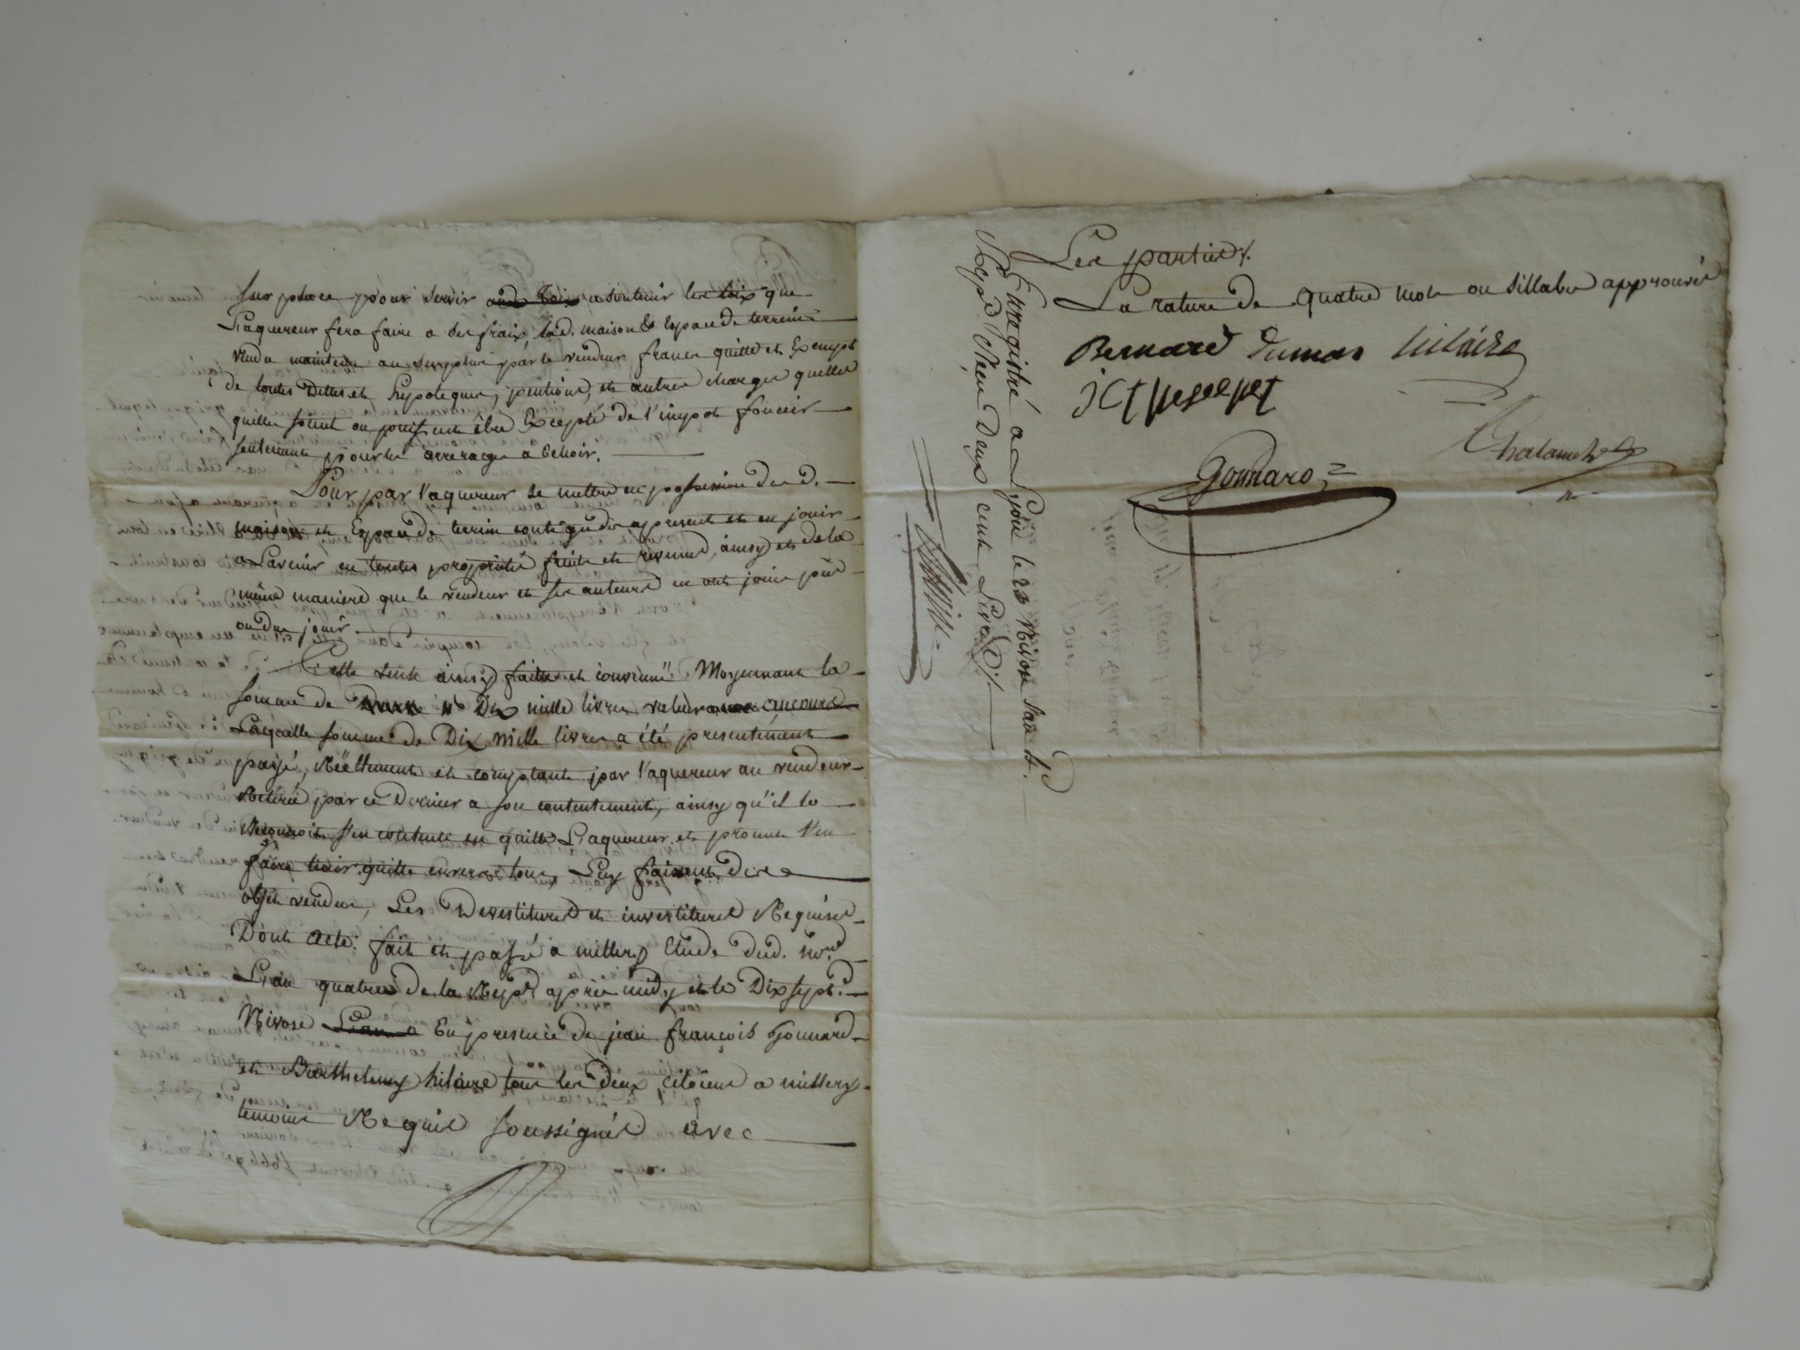 sur place pour servir a soutenir les toix que
L'aquereur fera faire a ses fraix, lad. maison & Espace de terrein
vendu maintenu au surplus par le vendeur franc quitte et Exempt
de toutes Dettes et hypoteques, pentions, et autres charges quelles
quelles soient ou puissent être Excepté de l'impot foncier
seulement pour les arrérages a Echoir.
Pour par l'aquereur se mettre en possession des d.
maison et Espace de terrein contigu des apresent et en jouir
a L'avenir en toutes propriété fruits et revenus, ainsy et de la
même maniere que le vendeur et ses auteurs en ont jouis pû
ou dus jouir
Cette vente ainsy faitte et convenue Moyennant la
somme de Dix mille livres valeur en cours
Laquelle somme de Dix mille livres a été presentement
payé, Réellement et comptant par l'aquereur au vendeur
Retiré par ce Dernier a son contentement, ainsy qu'il le
Reconnoit s'en contente en quitte L'aquereur et promet l'en
faire tenir quitte envers et tous, Luy faisent des
objets vendus, Les Devestitures et investitures Requises
Dont Acte: fait et passé a millery Etude dud. no.re
L'an quatre de la Rep.e après midy et le Dix sept.
Nivose En presence de jean françois Gonnard
et Barthelemy hilaire tous les deux citoiens a millery
temoins Requis soussignés avec
Les parties /.
La rature de quatre mots ou sillabes approuvée
Bernard Dumas hilaire
Gonnard
Enregistré a Lyon le 23 Nivose l'an 4.e
Reçu Deux cent Livres /.